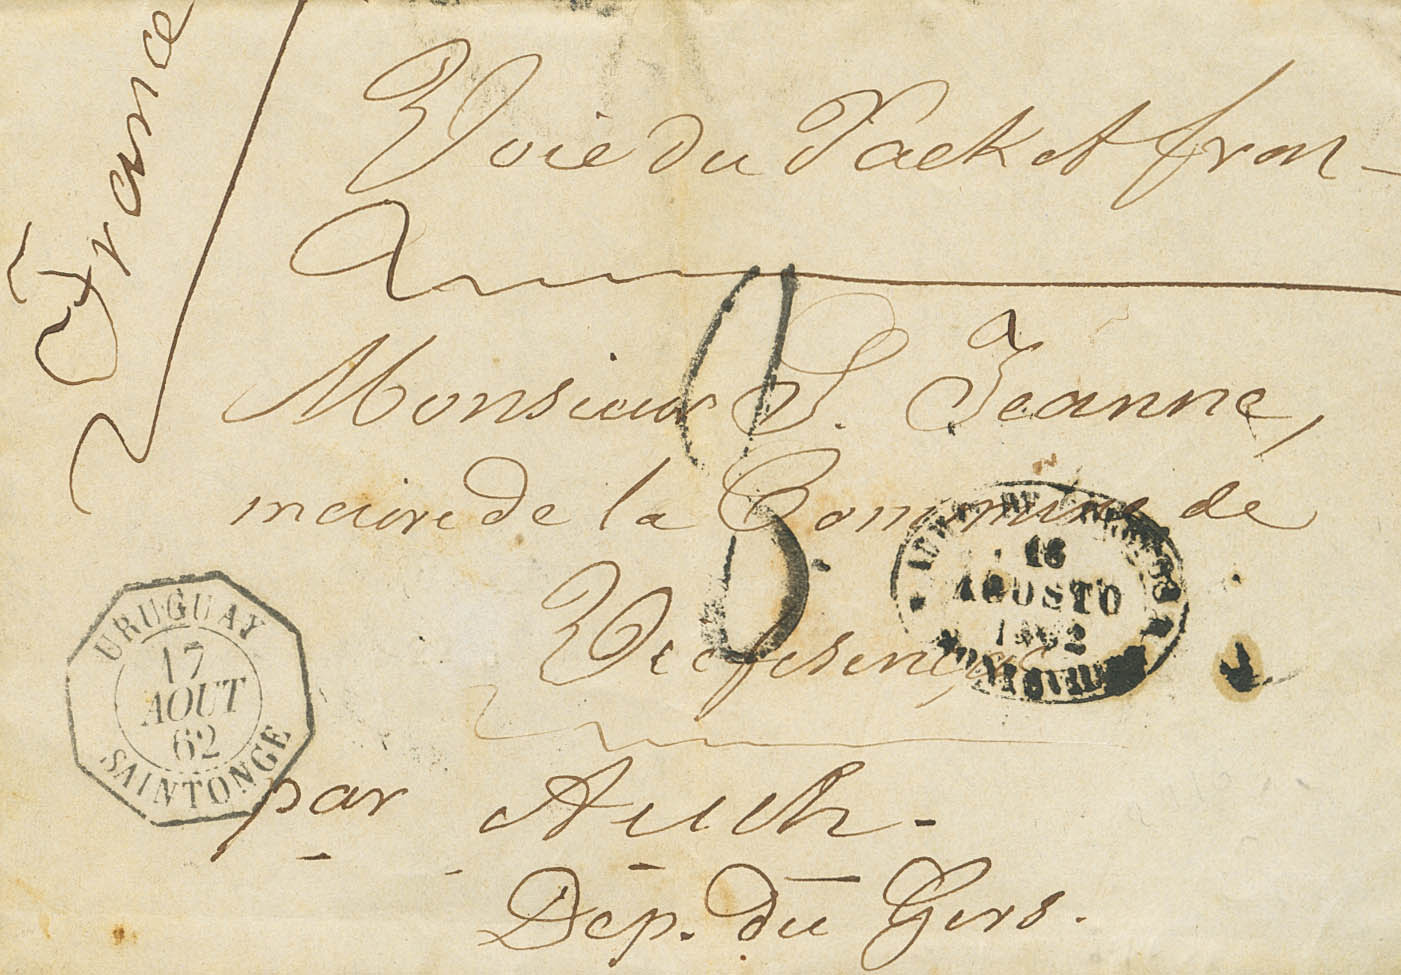 France
Voie du Packet fran-
Monsieur S. Jeanne,
maire de la Commune de
par Auch.
Dép. du Gers.
8
URUGUAY
17
AOUT
62
SAINTONGE
16
AGOSTO
1862
MONTEVIDEO